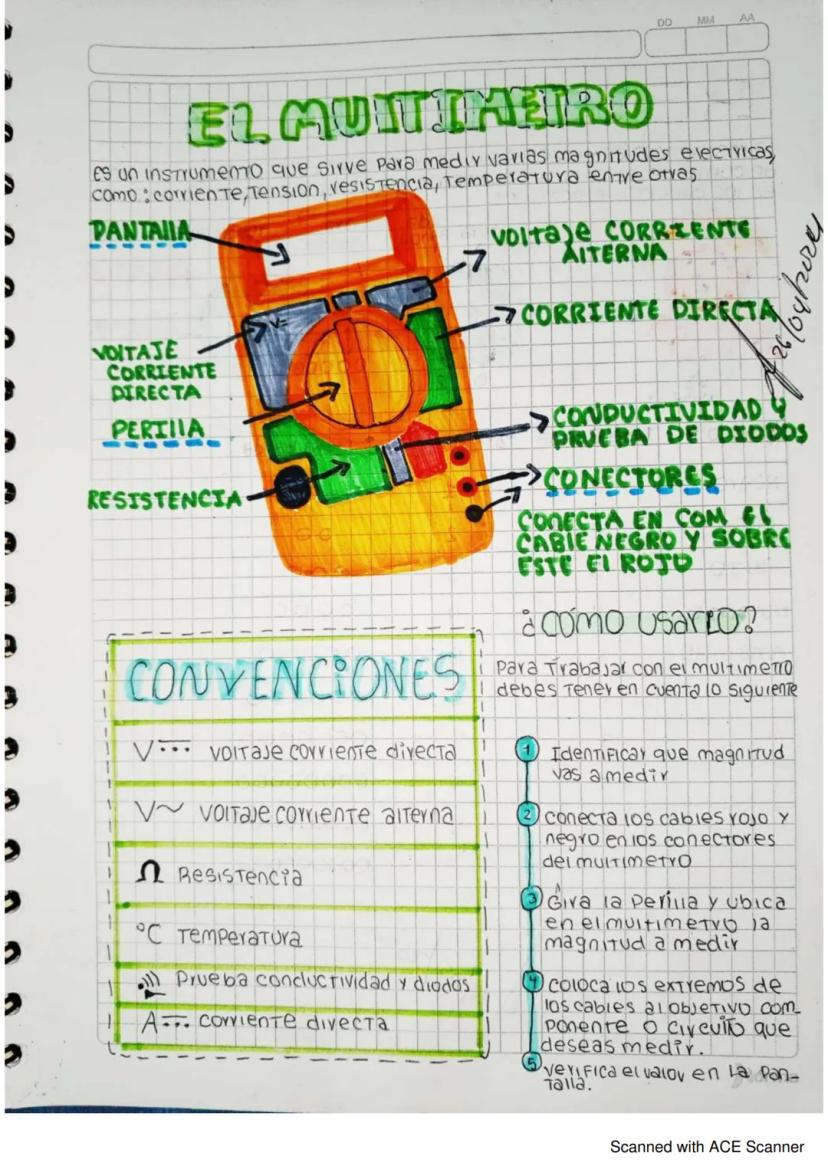 DD MM AA
EL MULTIMETRO
Es un instrumento que sirve para medir varias magnitudes electricas,
como: corriente, tension, resistencia, temperatura entre otras
PANTALLA
VOLTAJE CORRIENTE
ALTERNA
CORRIENTE DIRECTA
26/04/2024
V=
VOLTAJE
CORRIENTE
DIRECTA
PERILLA
CONDUCTIVIDAD Y
PRUEBA DE DIODOS
RESISTENCIA
CONECTORES
CONECTA EN COM EL
CABLE NEGRO Y SOBRE
ESTE El ROJO
¿CÓMO USARLO?
Para Trabajar con el multimetro
debes tener en cuenta lo siguiente
CONVENCIONES
V⎓ voltaje corriente directa
V~ voltaje corriente alterna
Ω Resistencia
°C Temperatura
Prueba conductividad y diodos
A⎓ corriente directa
1 Identificar que magnitud
vas a medir
2 conecta los cables rojo y
negro en los conectores
del multimetro
3 Gira la Perilla y ubica
en el multimetro la
magnitud a medir
4 coloca los extremos de
los cables al objetivo com-
ponente o circuito que
deseas medir.
5 verifica el valor en la pan-
talla.
Scanned with ACE Scanner